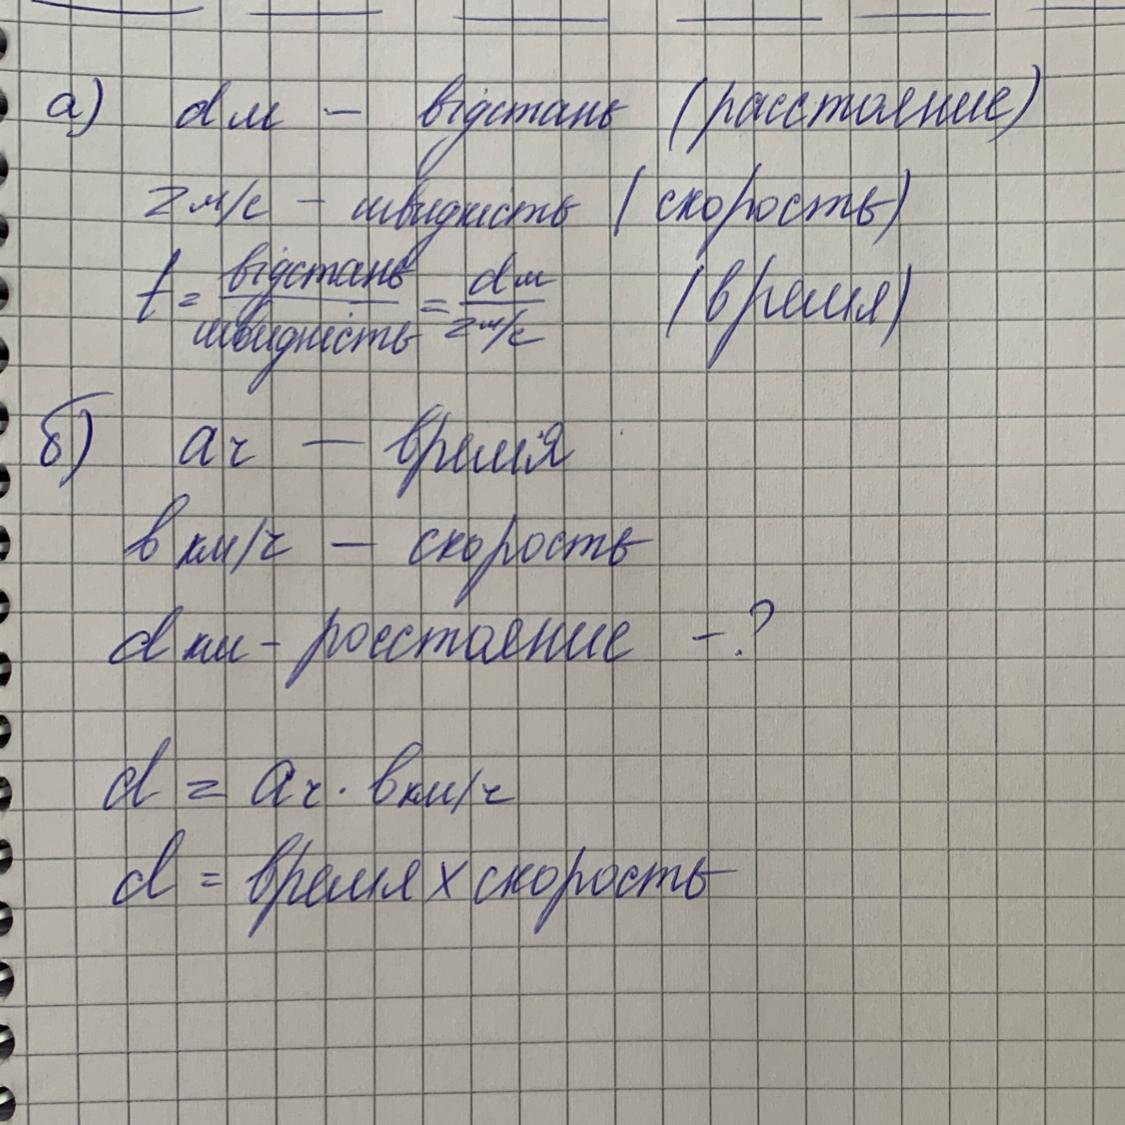 а) d м – відстань (расстояние)
z м/с – швидкість (скорость)
t = відстань / швидкість = d м / z м/с (время)
б) a ч — время
в км/ч — скорость
d км - росстояние - ?
d = a ч · в км/ч
d = время x скорость